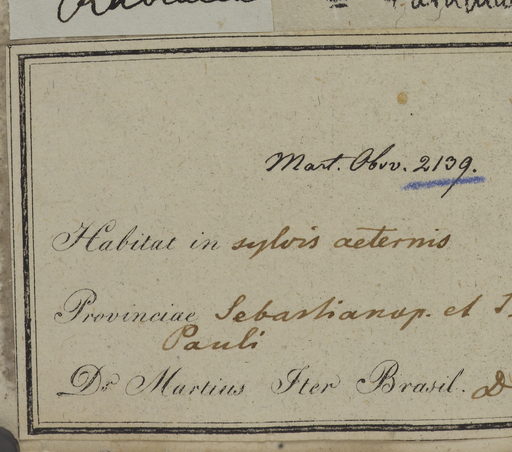 Mart. Obsv. 2139.
Habitat in sylvis aeternis
Provinciae Sebastianop. et S.
Pauli
Dr Martius Iter Brasil. D